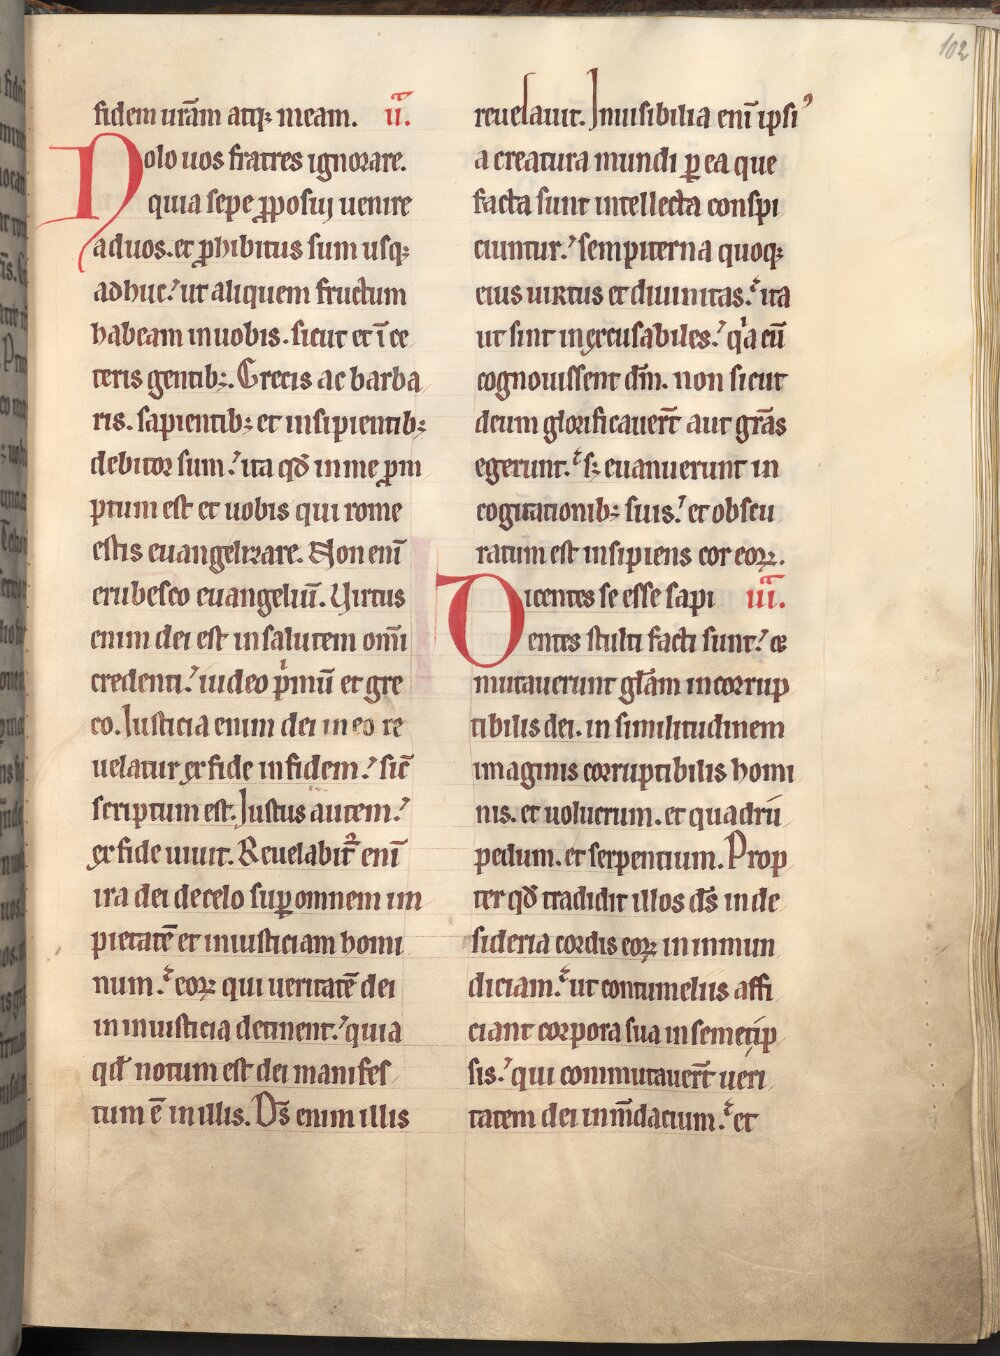 102
fidem ur̄am atq; meam. ıı͞a.
Nolo uos fratres ignorare.
quia sepe ꝓposuij uenire
ad uos. et ꝓhibitus sum usq;
adhuc. ut aliquem fructum
habeam in uobis. sicut et ī ce
teris gentib;. Grecis ac barba
ris. sapientib; et insipientib;
debitor sum. ita qđ in me ꝓm
ptum est et uobis qui rome
estis euangelizare. Non enī
erubesco euangeliū. Uirtus
enim dei est in salutem om̄i
credenti. iudeo pͥmū et gre
co. Iusticia enim dei in eo re
uelatur ex fide in fidem. sic̄
scriptum est. Iustus autem.
ex fide uiuit. Reuelabit᷑ enī
ira dei de celo suꝑ omnem im
pietatē et iniusticiam homi
num. eoꝝ qui ueritatē dei
in iniusticia detinent. quia
qđ notum est dei manifes
tum ē in illis. Ds̄ enim illis
reuelauit. Inuisibilia enī ipsiꝰ
a creatura mundi ꝑ ea que
facta sunt intellecta conspi
ciuntur. sempiterna quoq;
eius uirtus et diuinitas. ita
ut sint inexcusabiles. qͥa cū
cognouissent dm̄. non sicut
deum glorificauer̄t aut gr̄as
egerunt. s; euanuerunt in
cogitationib; suis. et obscu
ratum est insipiens cor eoꝝ.
Dicentes se esse sapi ııı͞a.
entes stulti facti sunt. &
mutauerunt gl̄am incorrup
tibilis dei. in similitudinem
imaginis corruptibilis homi
nis. et uolucrum. et quadru
pedum. et serpentium. Prop
ter qđ tradidit illos ds̄ in de
sideria cordis eoꝝ in inmun
diciam. ut contumeliis affi
ciant corpora sua in semetip
sis. qui commutauer̄t ueri
tatem dei in m̄dacium. et